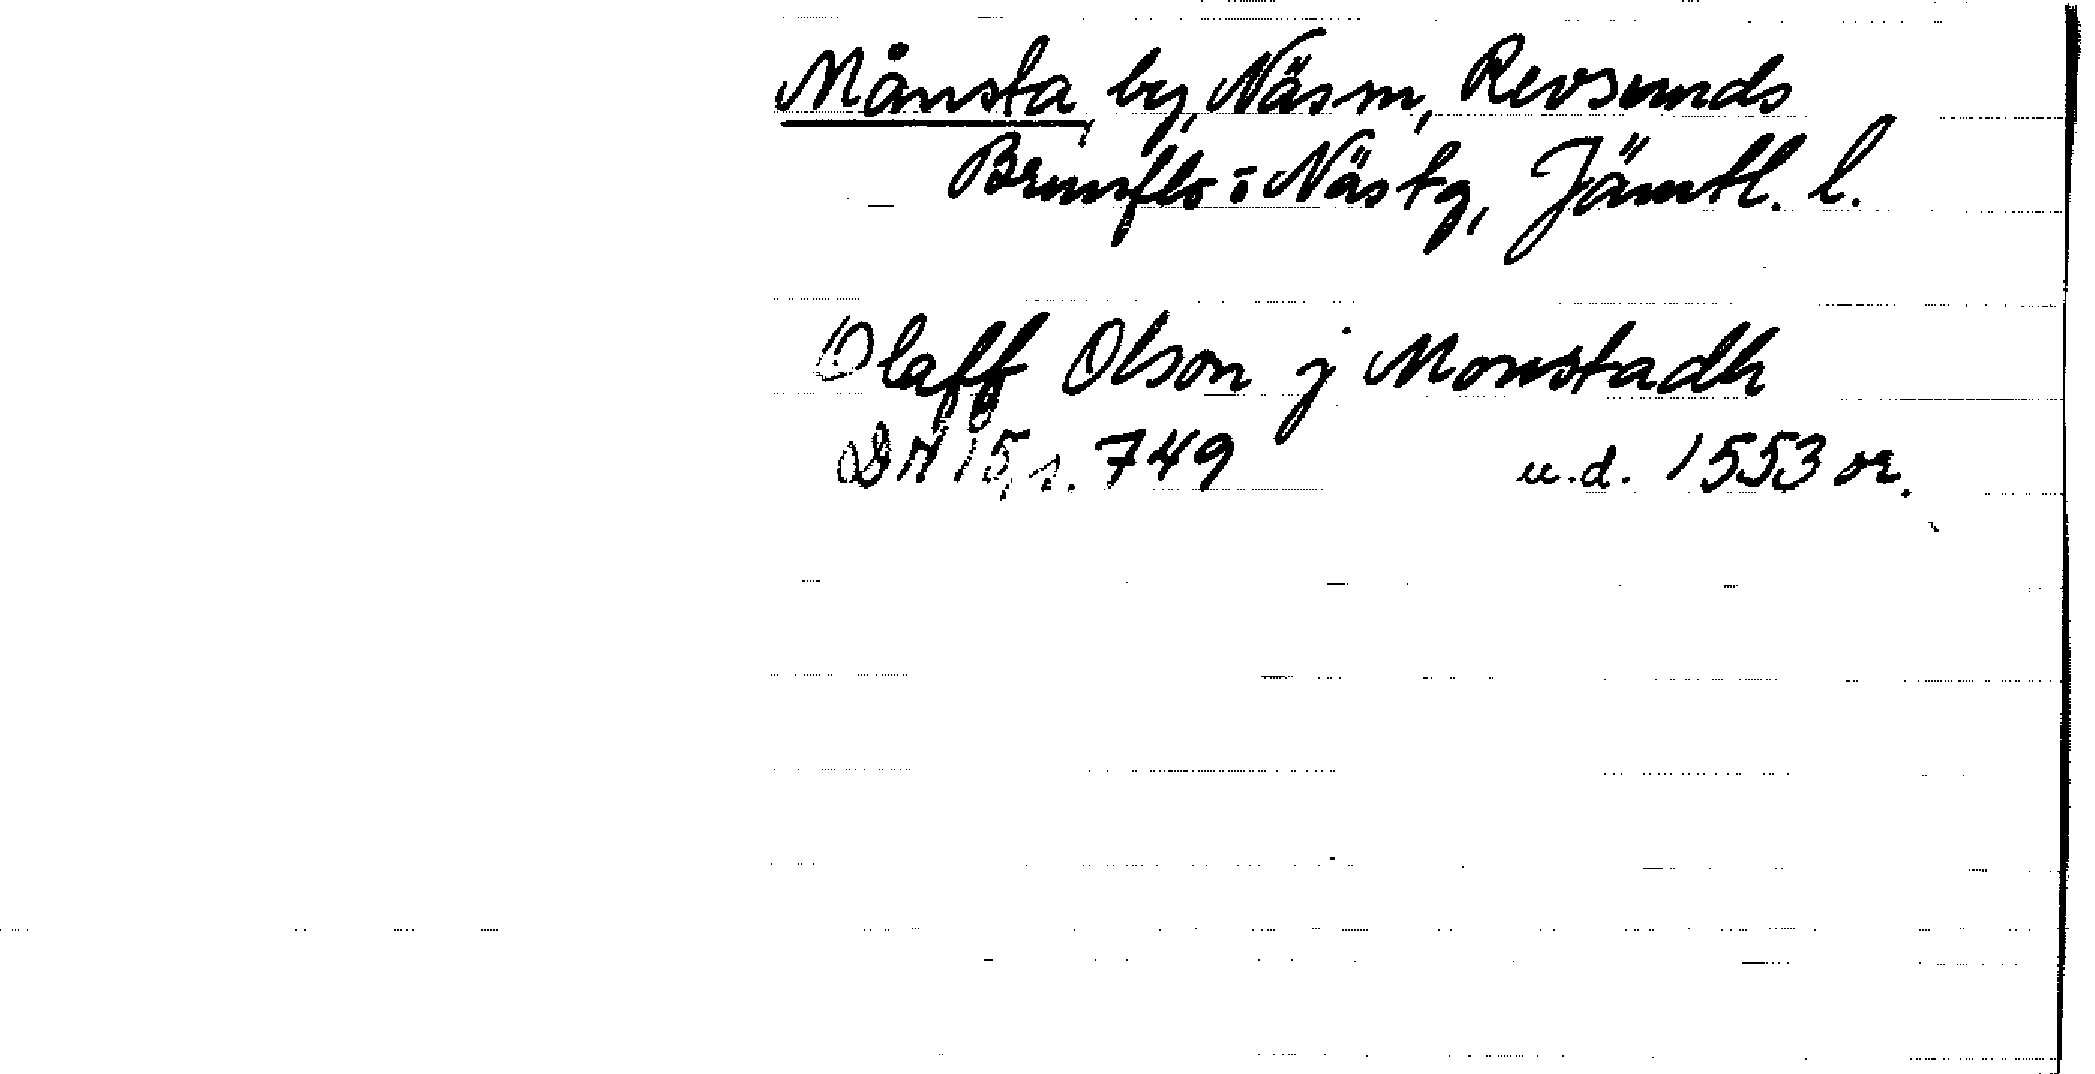 Månsta, by, Näs sn, Revsunds
Brunflo o Näs tg, Jämtl. l.
Olaff Olson j Monstadh
DN 15, s. 749 u.d. 1553 or.